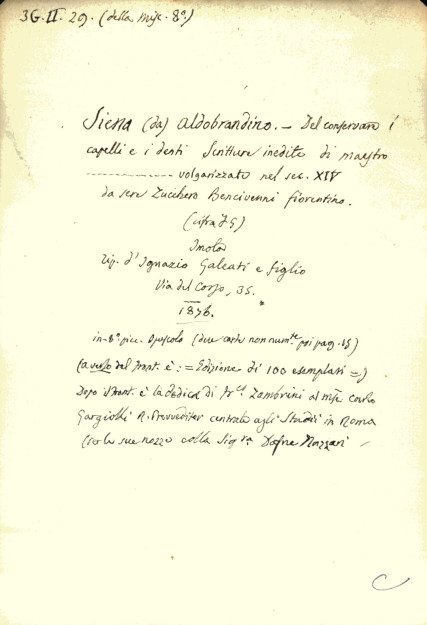 3G.II.29. (della Misc. 8ª.)
Siena (da) Aldobrandino. — Del conservare i
capelli e i denti Scritture inedite di maestro
---------------- volgarizzate nel sec. XIV
da sere Zucchero Bencivenni fiorentino.
(cifra
Imola
tip. d'Ignazio Galeati e figlio
Via del Corso, 35.
1876.
in-8º picc. Opuscolo (due carte non num.te poi pag. 15)
(a verso del front. è: = Edizione di 100 esemplari =)
Dopo il front. è la dedica di Fr.co Zambrini al
Carlo
Gargiolli R. Provveditor centrale agli Studii in Roma
le sue nozze colla Sig.ra Dafne Nazzari